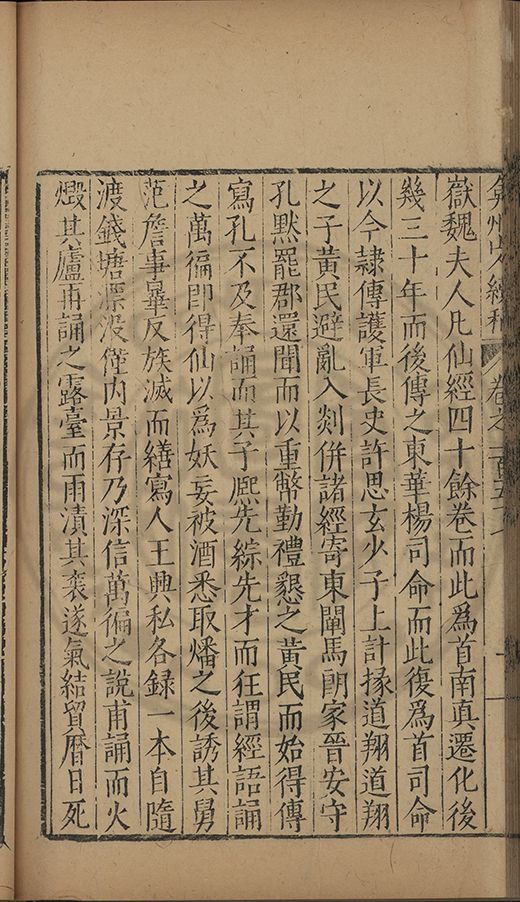 弇州山人續稿 卷之一百五十
嶽魏夫人凡仙經四十餘卷而此爲首南真遷化後
幾三十年而後傳之東華楊司命而此復爲首司命
以今隸傳護軍長史許思玄少子上計掾道翔道翔
之子黄民避亂入剡併諸經寄東闡馬朗家晉安守
孔默罷郡還聞而以重幣勤禮懇之黄民而始得傳
寫孔不及奉誦而其子熙先綜先才而狂謂經語誦
之萬徧即得仙以爲妖妄被酒悉取燔之後誘其舅
范詹事畢反族滅而繕寫人王興私各録一本自隨
渡錢塘漂没僅内景存乃深信萬徧之說甫誦而火
燬其廬再誦之露臺而雨漬其袠遂氣結貿曆日死